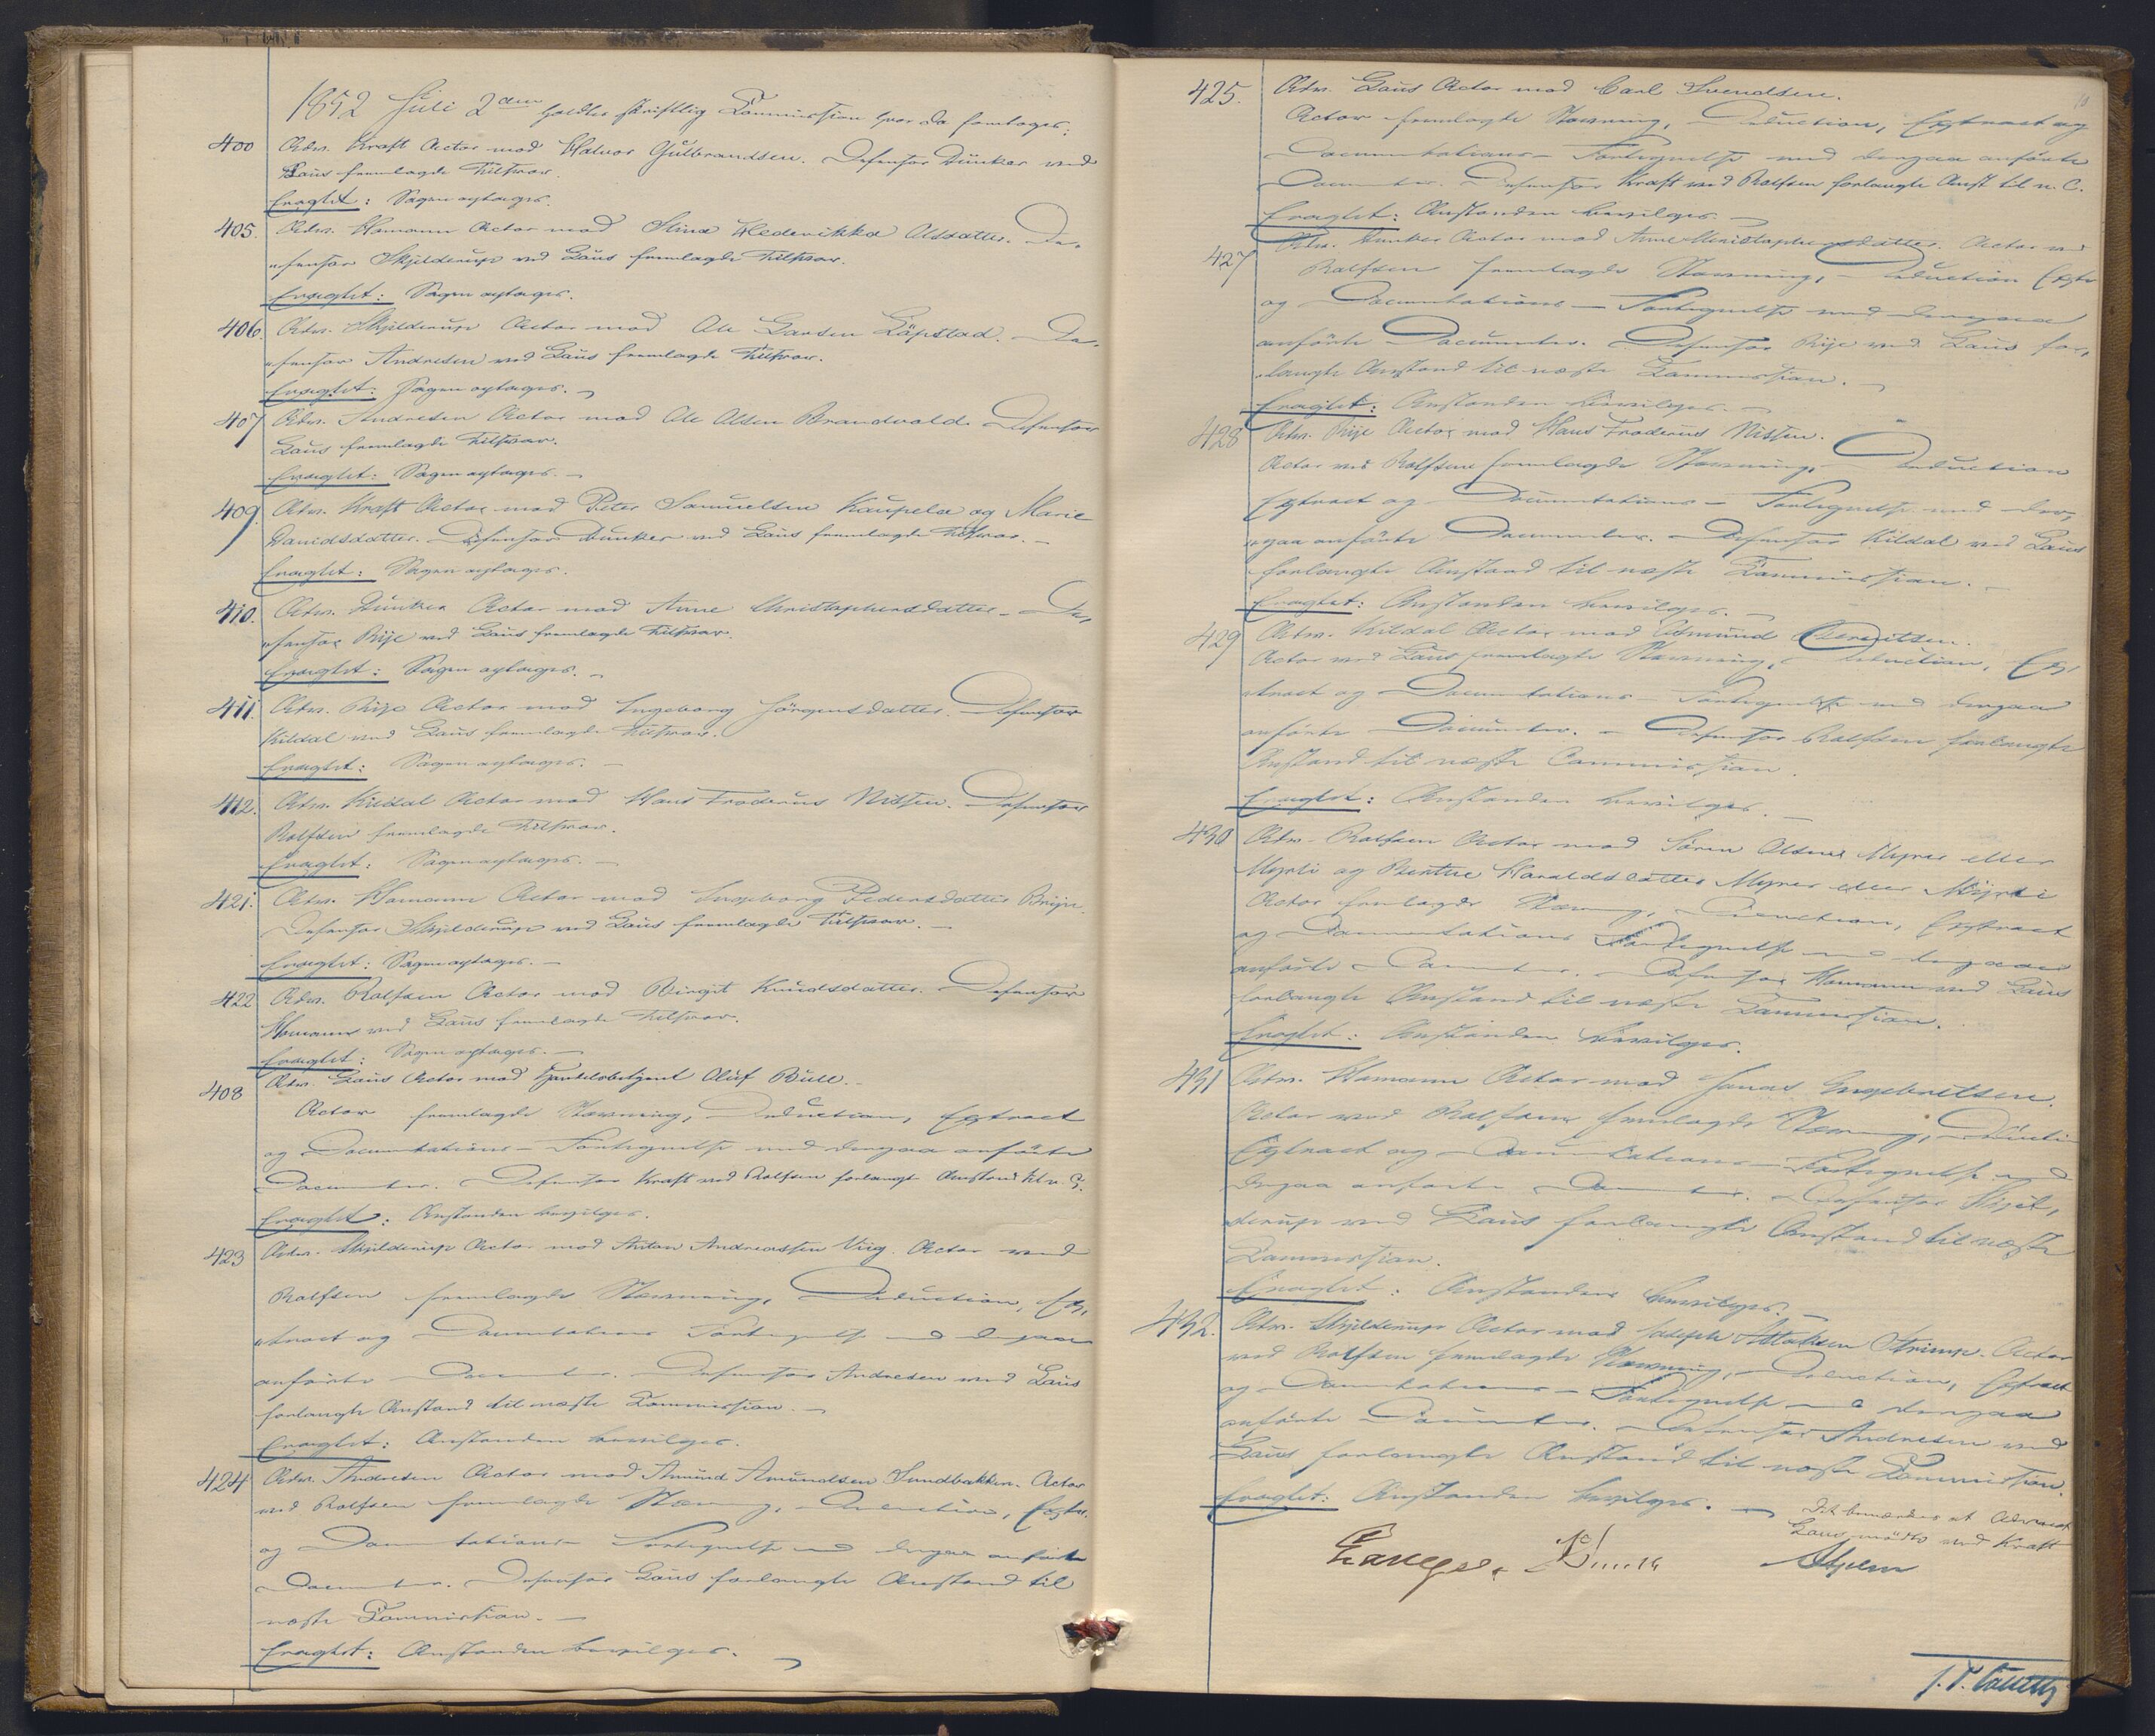 1852 Juli 2den holdtes skriftlig Commission hvor da foretoges:
400 Adv. Kraft Actor mod Halvor Gulbrandsen. Defensor Dunker ved
Laus fremlagde Tilsvar.
Eragtet: Sagen optages.
405. Adv. Homann Actor mod Stina Hedevikka Olsdatter. De-
„fensor Skjelderup ved Laus fremlagde Tilsvar.
Eragtet: Sagen optages.
406. Adv. Skjelderup Actor mod Ole Larsen Löpstad. De-
„fensor Andresen ved Laus fremlagde Tilsvar.
Eragtet: Sagen optages.
407 Adv. Andresen Actor mod Ole Olsen Brandvold. Defensor
Laus fremlagde Tilsvar.
Eragtet: Sagen optages.
409. Adv. Kraft Actor mod Peter Samuelsen Kaupela og Marie
Danidsdatter. Defensor Dunker ved Laus fremlagde Tilsvar.
Eragtet: Sagen optages.
410. Adv. Dunker Actor mod Anne Christophersdatter. De-
„fensor Rije ved Laus fremlagde Tilsvar.
Eragtet: Sagen optages.
411. Adv. Rije Actor mod Ingeborg Jörgensdatter. Defensor
Kildal ved Laus fremlagde Tilsvar.
Eragtet: Sagen optages.
412. Adv. Kildal Actor mod Hans Froderus Nissen. Defensor
Rolfsen fremlagde Tilsvar.
Eragtet: Sagen optages.
421. Adv. Homann Actor mod Ingeborg Pedersdatter Brije.
Defensor Skjelderup ved Laus fremlagde Tilsvar.
Eragtet: Sagen optages.
422 Adv. Rolfsen Actor mod Birgit Knudsdatter. Defensor
Homann ved Laus fremlagde Tilsvar.
Eragtet: Sagen optages.
408 Adv. Laus Actor mod Handelsbetjent Oluf Bull.
Actor fremlagde Stævning, Deduction, Extract
og Documentations-Fortegnelse med derpaa anförte
Documenter. Defensor Kraft ved Rolfsen forlangte Anstand til n. C.
Eragtet: Anstanden bevilges.
423 Adv. Skjelderup Actor mod Anton Andreassen Viig. Actor ved
Rolfsen fremlagde Stævning, Deduction, Ex-
„tract og Documentations Fortegnelse med derpaa
anförte Documenter. Defensor Andresen ved Laus
forlangte Anstand til næste Commission.
Eragtet: Anstanden bevilges.
424 Adv. Andresen Actor mod Amund Amundsen Sundbakken. Actor
ved Rolfsen fremlagde Stævning, Deduction, Extr.
og Documentations Fortegnelse med derpaa anförte
Documenter. Defensor Laus forlangte Anstand til
næste Commission.
Eragtet: Anstanden bevilges.
425. Adv. Laus Actor mod Carl Svendsen.
Actor fremlagde Stævning, Deduction, Extract og
Documentations-Fortegnelse med derpaa anförte
Documenter. Defensor Kraft ved Rolfsen forlangte Anst til n. C.
Eragtet: Anstanden bevilges.
427 Adv. Dunker Actor mod Anne Christophersdatter. Actor ved
Rolfsen fremlagde Stævning, Deduction Extr
og Documentations-Fortegnelse med derpaa
anförte Documenter. Defensor Rije ved Laus for-
„langte Anstand til næste Commission.
Eragtet: Anstanden bevilges.
428 Adv. Rije Actor mod Hans Froderus Nissen.
Actor ved Rolfsen fremlagde Stævning, Deduction
Extract og Documentations-Fortegnelse med der-
„paa anförte Documenter. Defensor Kildal ved Laus
forlangte Anstand til næste Commission.
Eragtet: Anstanden bevilges.
429 Adv. Kildal Actor mod Asmund
Actor ved Laus fremlagde Stævning, Deduction, Ex-
„tract og Documentations-Fortegnelse med derpaa
anförte Documenter. Defensor Rolfsen forlangte
Anstand til næste Commission.
Eragtet: Anstanden bevilges.
430 Adv. Rolfsen Actor mod Sören Olsen Myrer eller
Myrli og Berthe Haraldsdatter Myrer eller Myrli
Actor fremlagde Stævning, Deduction, Extract
og Documentations Fortegnelse med derpaa
anförte Documenter. Defensor Homann ved Laus
forlangte Anstand til næste Commission.
Eragtet: Anstanden bevilges.
431 Adv. Homann Actor mod Jonas Engebretsen.
Actor ved Rolfsen fremlagde Stævning, Deducti
Extract og Documentations-Fortegnelse med
derpaa anförte Documenter. Defensor Skjel-
„derup ved Laus forlangte Anstand til næste
Commission.
Eragtet: Anstanden bevilges.
432. Adv. Skjelderup Actor mod Actor
ved Rolfsen fremlagde Stævning, Deduction, Extract
og Documentations-Fortegnelse med derpaa
anförte Documenter. Defensor Andresen ved
Laus forlangte Anstand til næste Commission.
Eragtet: Anstanden bevilges.
Det bemærkes at Advocat
Laus mödte ved Kraft